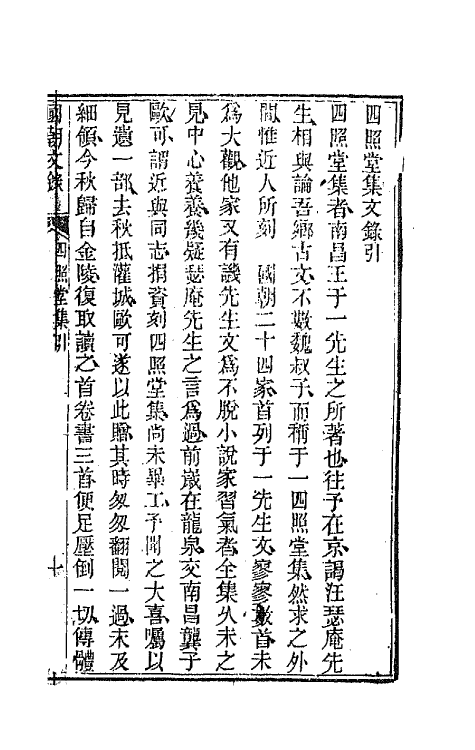 四照堂集文錄引
四照堂集者南昌王于一先生之所著也往予在京謁汪瑟庵先
生相與論吾鄉古文不數魏叔子而稱于一四照堂集然求之外
間惟近人所刻 國朝二十四家首列于一先生文寥寥數首未
爲大觀他家又有譏先生文爲不脫小說家習氣者全集久未之
見中心養養幾疑瑟庵先生之言爲過前歲在龍泉交南昌龔子
歐可謂近與同志捐資刻四照堂集尚未畢工予聞之大喜囑以
見遺一部去秋抵灌城歐可遂以此贈其時匆匆翻閱一過未及
細領今秋歸自金陵復取讀之首卷書三首便足壓倒一切傳體
國朝文錄 四照堂集引 十